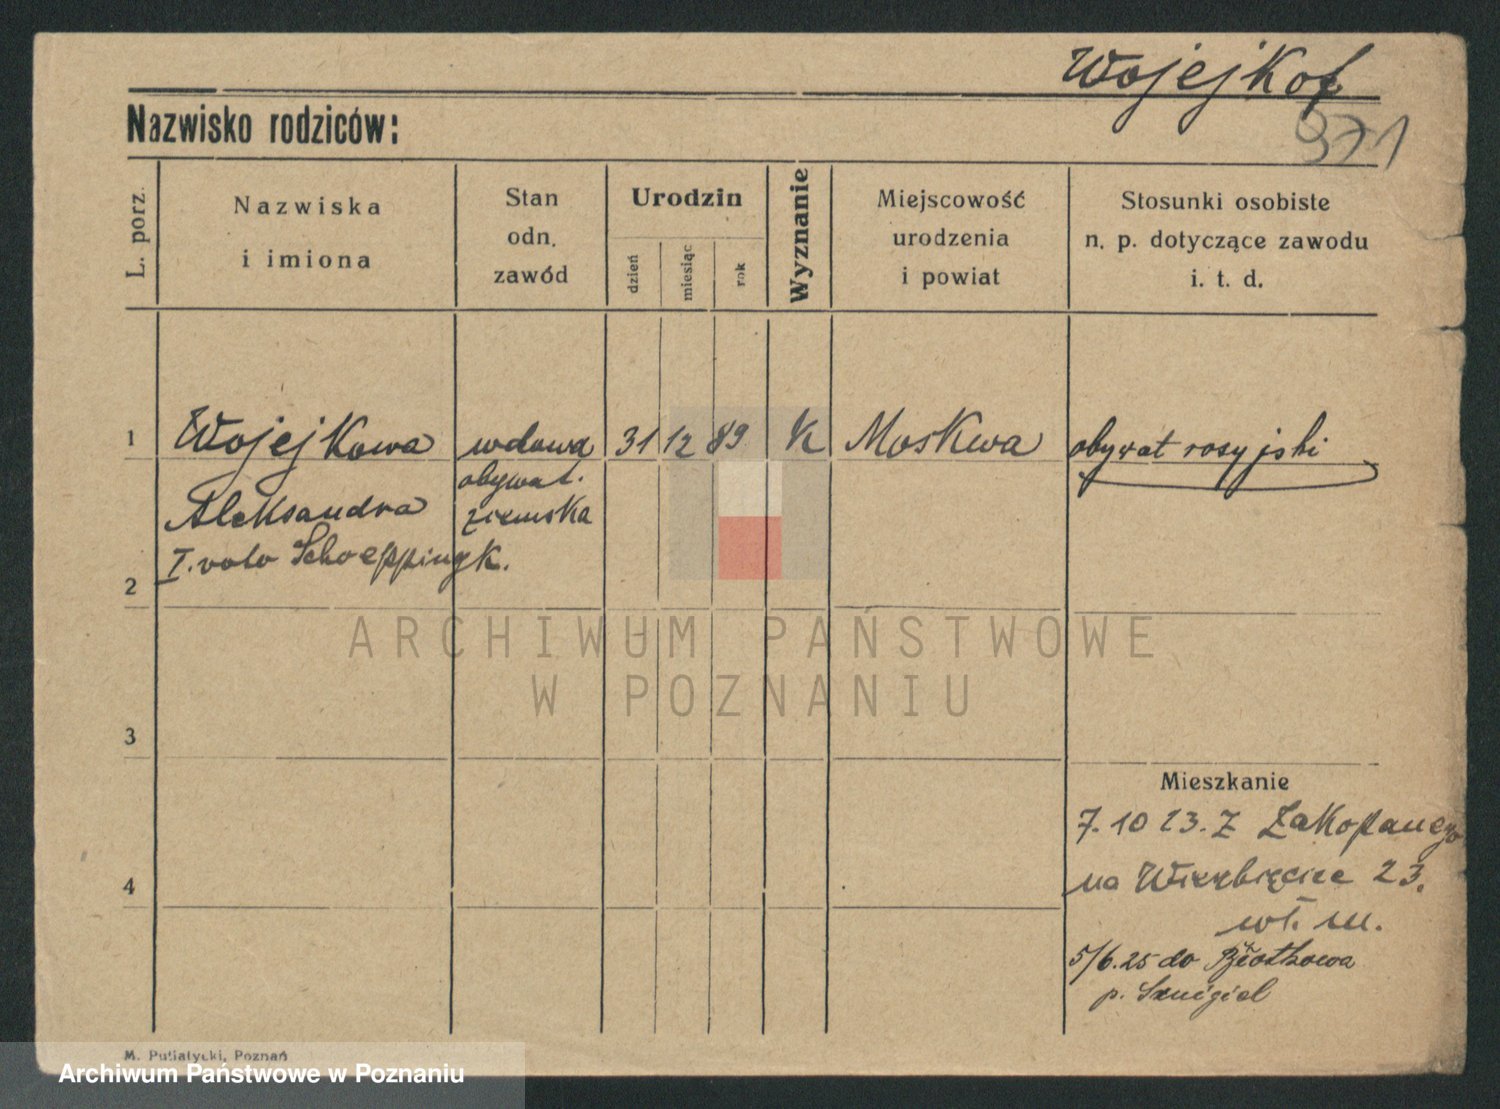 Wojejkof
Nazwisko rodziców:
971
L. porz.
Nazwiska
i imiona
Stan
odn.
zawód
Urodzin
dzień
miesiąc
rok
Wyznanie
Miejscowość
urodzenia
i powiat
Stosunki osobiste
n. p. dotyczące zawodu
i. t. d.
1 Wojejkowa wdowa 31 12 89 K Moskwa obywat rosyjski
obywat.
Aleksandra ziemska
I. voto Schoeppingk.
2
ARCHIWUM PAŃSTWOWE
W POZNANIU
3
Mieszkanie
7.10 23. Z Zakopanego
4
na Wierzbięcice 23.
wł. m.
5/6.25 do
p. Szmigiel
M. Putiatycki, Poznań
Archiwum Państwowe w Poznaniu